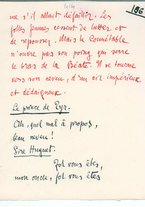 186
ne s'il allait défaillir. Les
folles femmes cessent de lutter et
de repousser. Mais le Connétable
n'ouvre pas son poing qui serre
le bras de la Béate. Il se tourne
vers son neveu, d'un air impérieux
et dédaigneux.
Le prince de Pyr.
Oh, quel mal à propos,
beau neveu!
Sire Huguet.
Fol vous êtes,
mon oncle, fol vous êtes